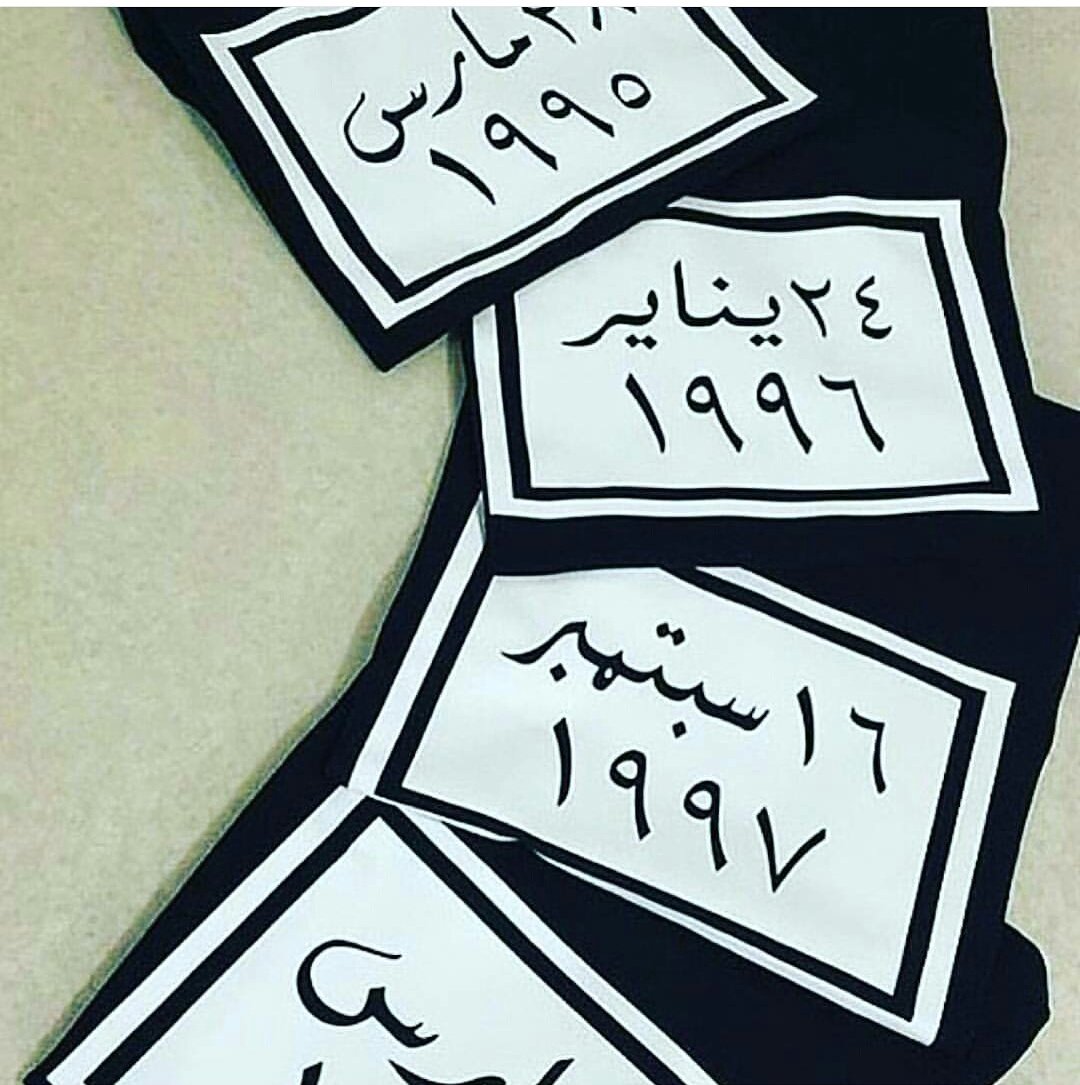 مارس
١٩٩٥
٢٤ يناير
١٩٩٦
١٦ سبتمبر
١٩٩٧